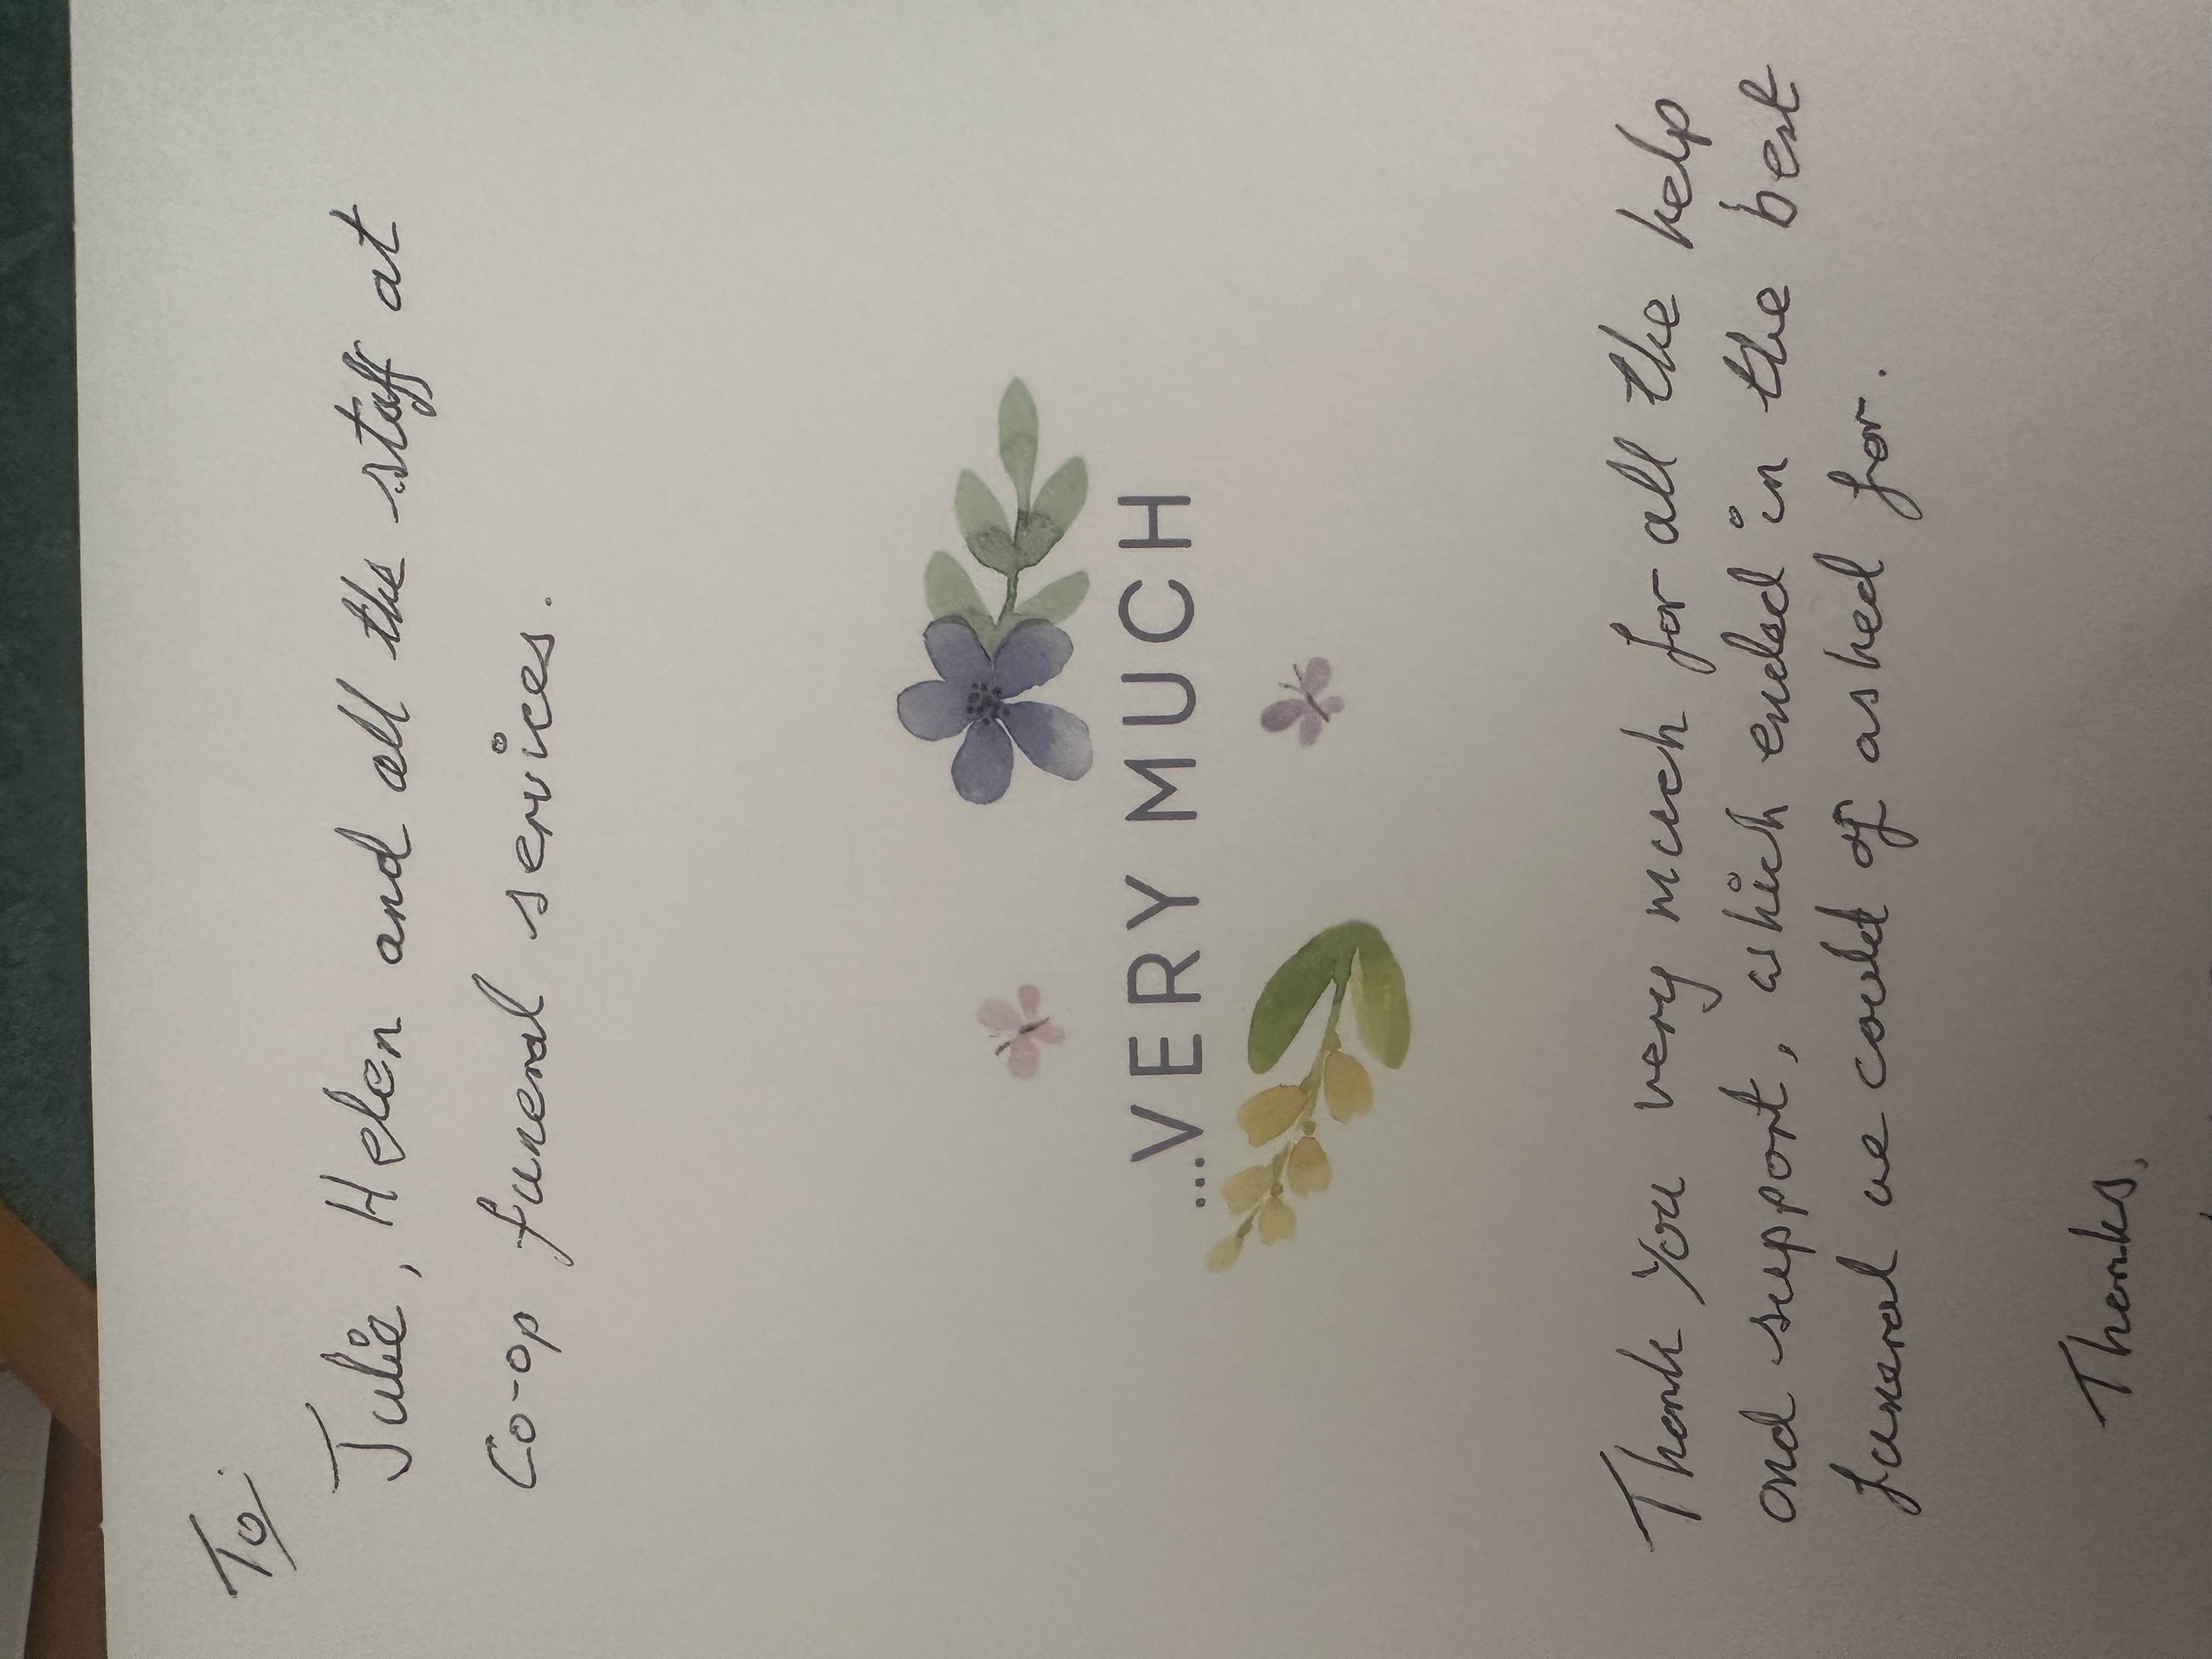 To
Julie, Helen and all the staff at
Co-op funeral services.
...VERY MUCH
Thank you very much for all the help
and support, which ended in the best
funeral we could of asked for.
Thanks,